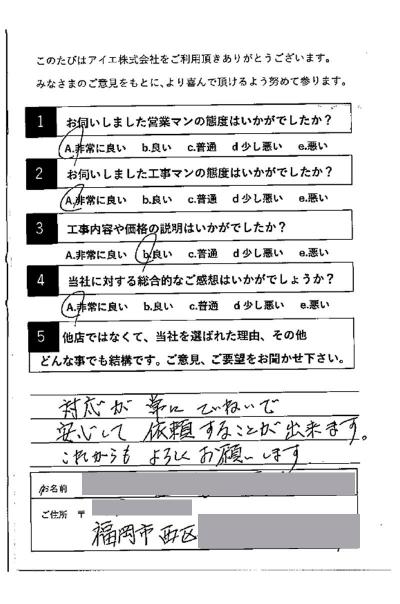 このたびはアイエ株式会社をご利用頂きありがとうございます。
みなさまのご意見をもとに、より喜んで頂けるよう努めて参ります。
1 お伺いしました営業マンの態度はいかがでしたか?
A.非常に良い b.良い c.普通 d少し悪い e.悪い
2 お伺いしました工事マンの態度はいかがでしたか?
A.非常に良い b.良い c.普通 d少し悪い e.悪い
3 工事内容や価格の説明はいかがでしたか?
A.非常に良い b.良い c.普通 d少し悪い e.悪い
4 当社に対する総合的なご感想はいかがでしょうか?
A.非常に良い b.良い c.普通 d少し悪い e.悪い
5 他店ではなくて、当社を選ばれた理由、その他
どんな事でも結構です。ご意見、ご要望をお聞かせ下さい。
対応が常にていねいで
安心して依頼することが出来ます。
これからもよろしくお願いします
お名前
ご住所 〒
福岡市西区